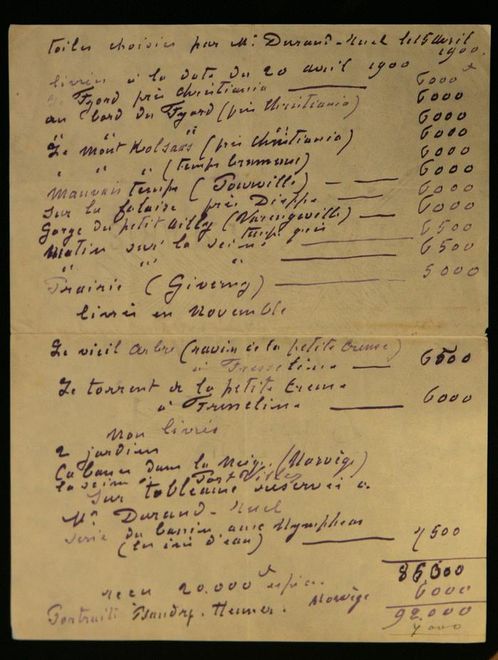 toiles choisies par Mr Durand-Ruel le 15 avril 1900.
livrées à la date du 20 avril 1900
Fjord près Christiania — 6000 f
au bord du Fjord (près Christiania) 6000
" " " " 6000
Le Mont Kolsaas (près Christiania) 6000
" " " (temps brumeux) 6000
Mauvais temps (Pourville) — — 6000
Sur la falaise près Dieppe — 6000
Gorge du petit Ailly (Varengeville) — 6000
Matin sur la Seine temps gris — 6500
" " " — 6500
Prairie (Giverny) — 5000
livrés en Novembre
Le vieil arbre (ravin de la petite Creuse)
à Fresselines — 6500
Le torrent de la petite Creuse
à Fresselines — 6000
Non livrés
2 jardins
Cabanes dans la Neige (Norvège)
la Seine à Port Villez
Sur tableaux réservés à
Mr Durand-Ruel
Série du bassin aux Nymphéas
(les iris d'eau) — 7500
reçu 20.000 f
6000
Norvège
92.000
Portraits